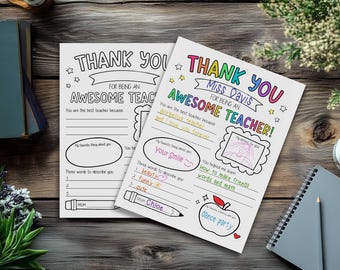 THANK YOU
FOR BEING AN
AWESOME TEACHER!
You are the best teacher because
My favorite thing about you:
Three words to describe you:
1.
2.
3.
FROM
THANK YOU
Miss Davis
FOR BEING AN
AWESOME TEACHER!
You are the best teacher because
and I love you forever
My favorite thing about you:
your smile
You helped me learn
How to make friends
words and math
Three words to describe you:
1. beautiful
2. funny
3. cute
dance party
FROM Chloe